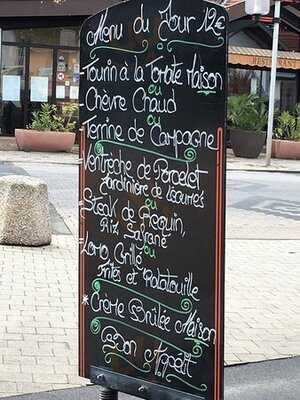 Menu du Jour 12€
Tourin à la Tomate Maison
ou
Chèvre Chaud
ou
Terrine de Campagne
Ventreche de Porcelet
Jardinière de Légumes
ou
Steak de Requin,
Riz Safrané
ou
Lomo Grillé
Frites et Ratatouille
*Crème Brûlée Maison
Bon Appétit